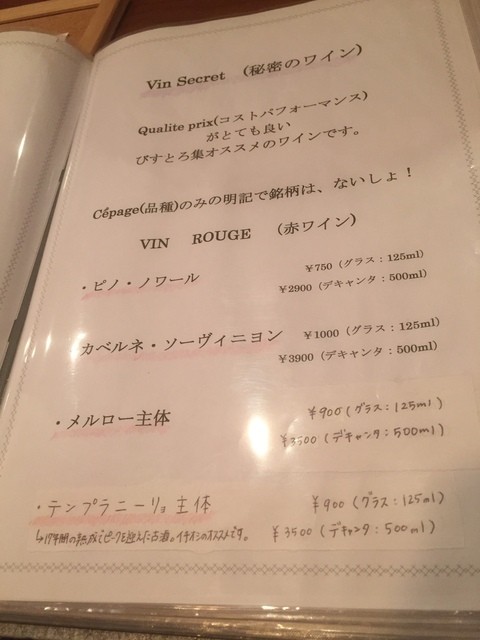 Vin Secret （秘密のワイン）
Qualite prix(コストパフォーマンス)
がとても良い
びすとろ集オススメのワインです。
Cépage(品種)のみの明記で銘柄は、ないしょ！
VIN ROUGE （赤ワイン）
・ピノ・ノワール ￥750（グラス：125ml）
￥2900（デキャンタ：500ml）
カベルネ・ソーヴィニヨン ￥1000（グラス：125ml）
￥3900（デキャンタ：500ml）
・メルロー主体 ￥900（グラス：125ml）
￥3500（デキャンタ：500ml）
・テンプラニーリョ主体 ￥900（グラス：125ml）
↳17年間の熟成でピークを迎えた古酒。イチオシのオススメです。 ￥3500（デキャンタ：500ml）